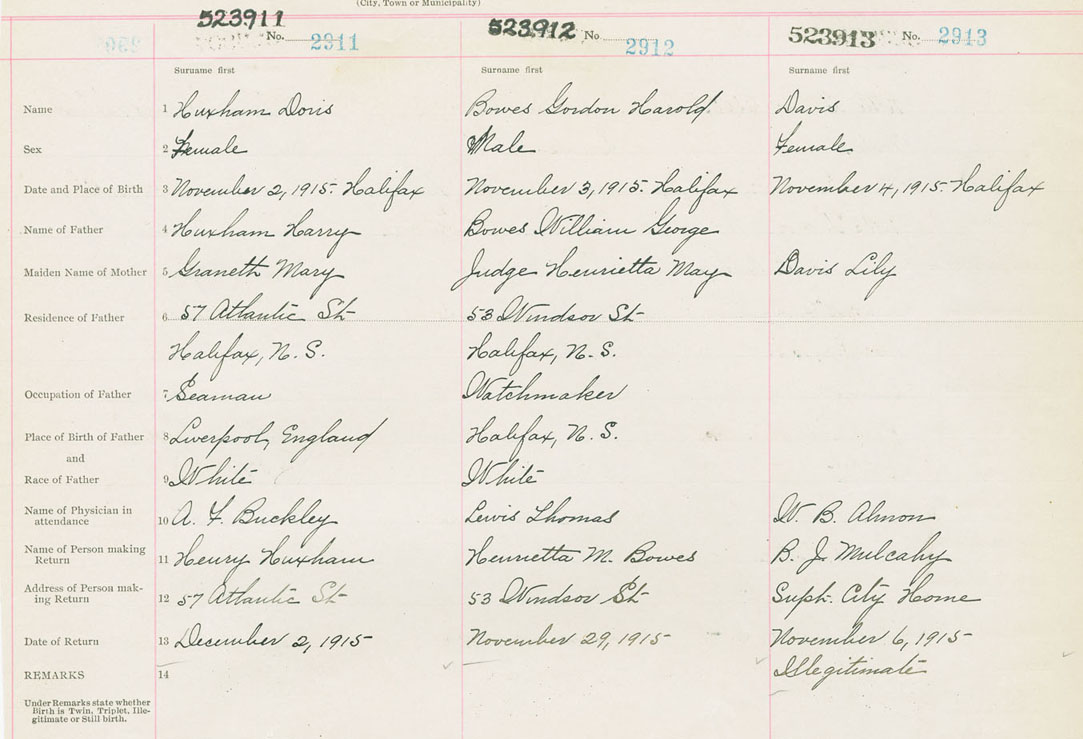 (City, Town or Municipality)
523911 No. 2911 523912 No. 2912 523913 No. 2913
Surname first Surname first Surname first
Name 1 Huxham Doris Bowes Gordon Harold Davis
Sex 2 Female Male Female
Date and Place of Birth 3 November 2, 1915. Halifax November 3, 1915. Halifax November 4, 1915. Halifax
Name of Father 4 Huxham Harry Bowes William George
Maiden Name of Mother 5 Graneth Mary Judge Henrietta May Davis Lily
Residence of Father 6 57 Atlantic St 53 Windsor St
Halifax, N. S. Halifax, N. S.
Occupation of Father 7 Seaman Watchmaker
Place of Birth of Father 8 Liverpool, England Halifax, N. S.
and
Race of Father 9 White White
Name of Physician in attendance 10 A. F. Buckley Lewis Thomas W. B. Almon
Name of Person making Return 11 Henry Huxham Henrietta M. Bowes B. J. Mulcahy
Address of Person making Return 12 57 Atlantic St 53 Windsor St Supt. City Home
Date of Return 13 December 2, 1915 November 29, 1915 November 6, 1915
REMARKS 14 Illegitimate
Under Remarks state whether
Birth is Twin, Triplet, Ille-
gitimate or Still birth.